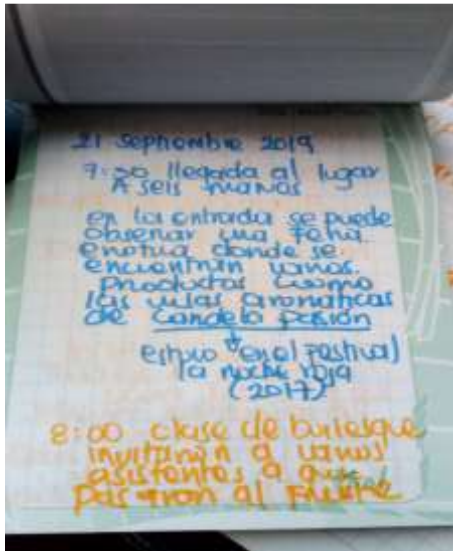 21 septiembre 2019
7:30 llegada al lugar
A seis manos
en la entrada se puede
observar una feria
erotica donde se
encuentran varios
productos como
las velas aromaticas
de Candela pasión
estuvo en el festival
la noche roja
(2017)
8:00 clase de burlesque
invitaron a varios
asistentes a que
pasaran al frente